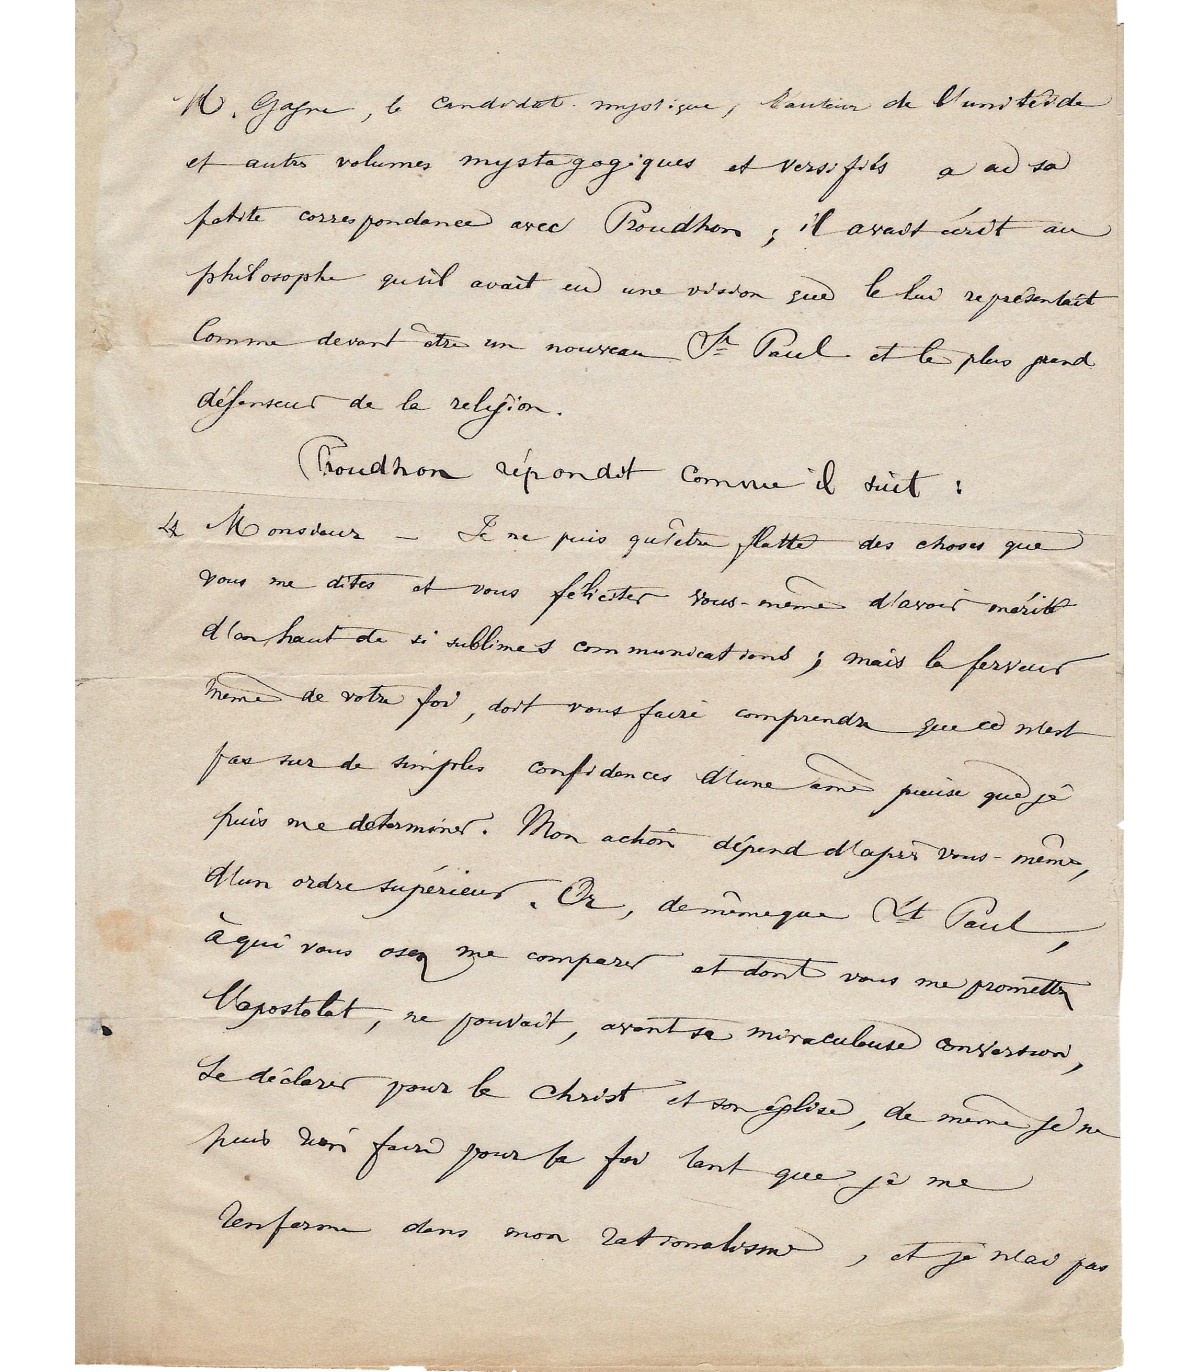 M. Gagne, le candidat mystique, l'auteur de l'unitéide
et autres volumes mystagogiques et versifiés a eu sa
petite correspondance avec Proudhon ; il avait écrit au
philosophe qu'il avait eu une vision que le lui représentait
comme devant être un nouveau St Paul et le plus grand
défenseur de la religion.
Proudhon répondit comme il suit :
Monsieur — Je ne puis qu'être flatté des choses que
vous me dites et vous féliciter vous-même d'avoir mérité
d'en haut de si sublimes communications ; mais la ferveur
même de votre foi, doit vous faire comprendre que ce n'est
pas sur de simples confidences d'une âme pieuse que je
puis me determiner. Mon action dépend d'après vous-même,
d'un ordre supérieur. Or, de même que St Paul,
à qui vous osez me comparer et dont vous me promettez
l'apostolat, ne pouvait, avant sa miraculeuse conversion,
se déclarer pour le Christ et son église, de même je ne
puis rien faire pour la foi tant que je me
renferme dans mon rationalisme, et je n'ai pas